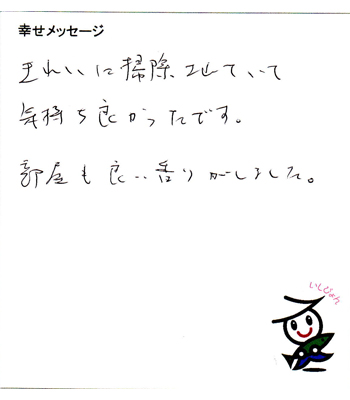 幸せメッセージ
きれいに掃除させていて
気持ち良かったです。
部屋も良い香りがしました。
いしぴょん